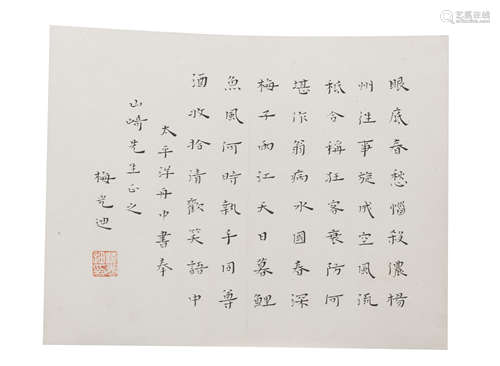 眼底春愁惱殺濃楊
州往事旋成空風流
秪今稱狂客衰防何
堪作翁病水國春深
梅子雨江天日暮鯉
魚風何時執手同尊
酒收拾清歡笑語中
太平洋舟中書奉
山崎先生正之
梅光迪